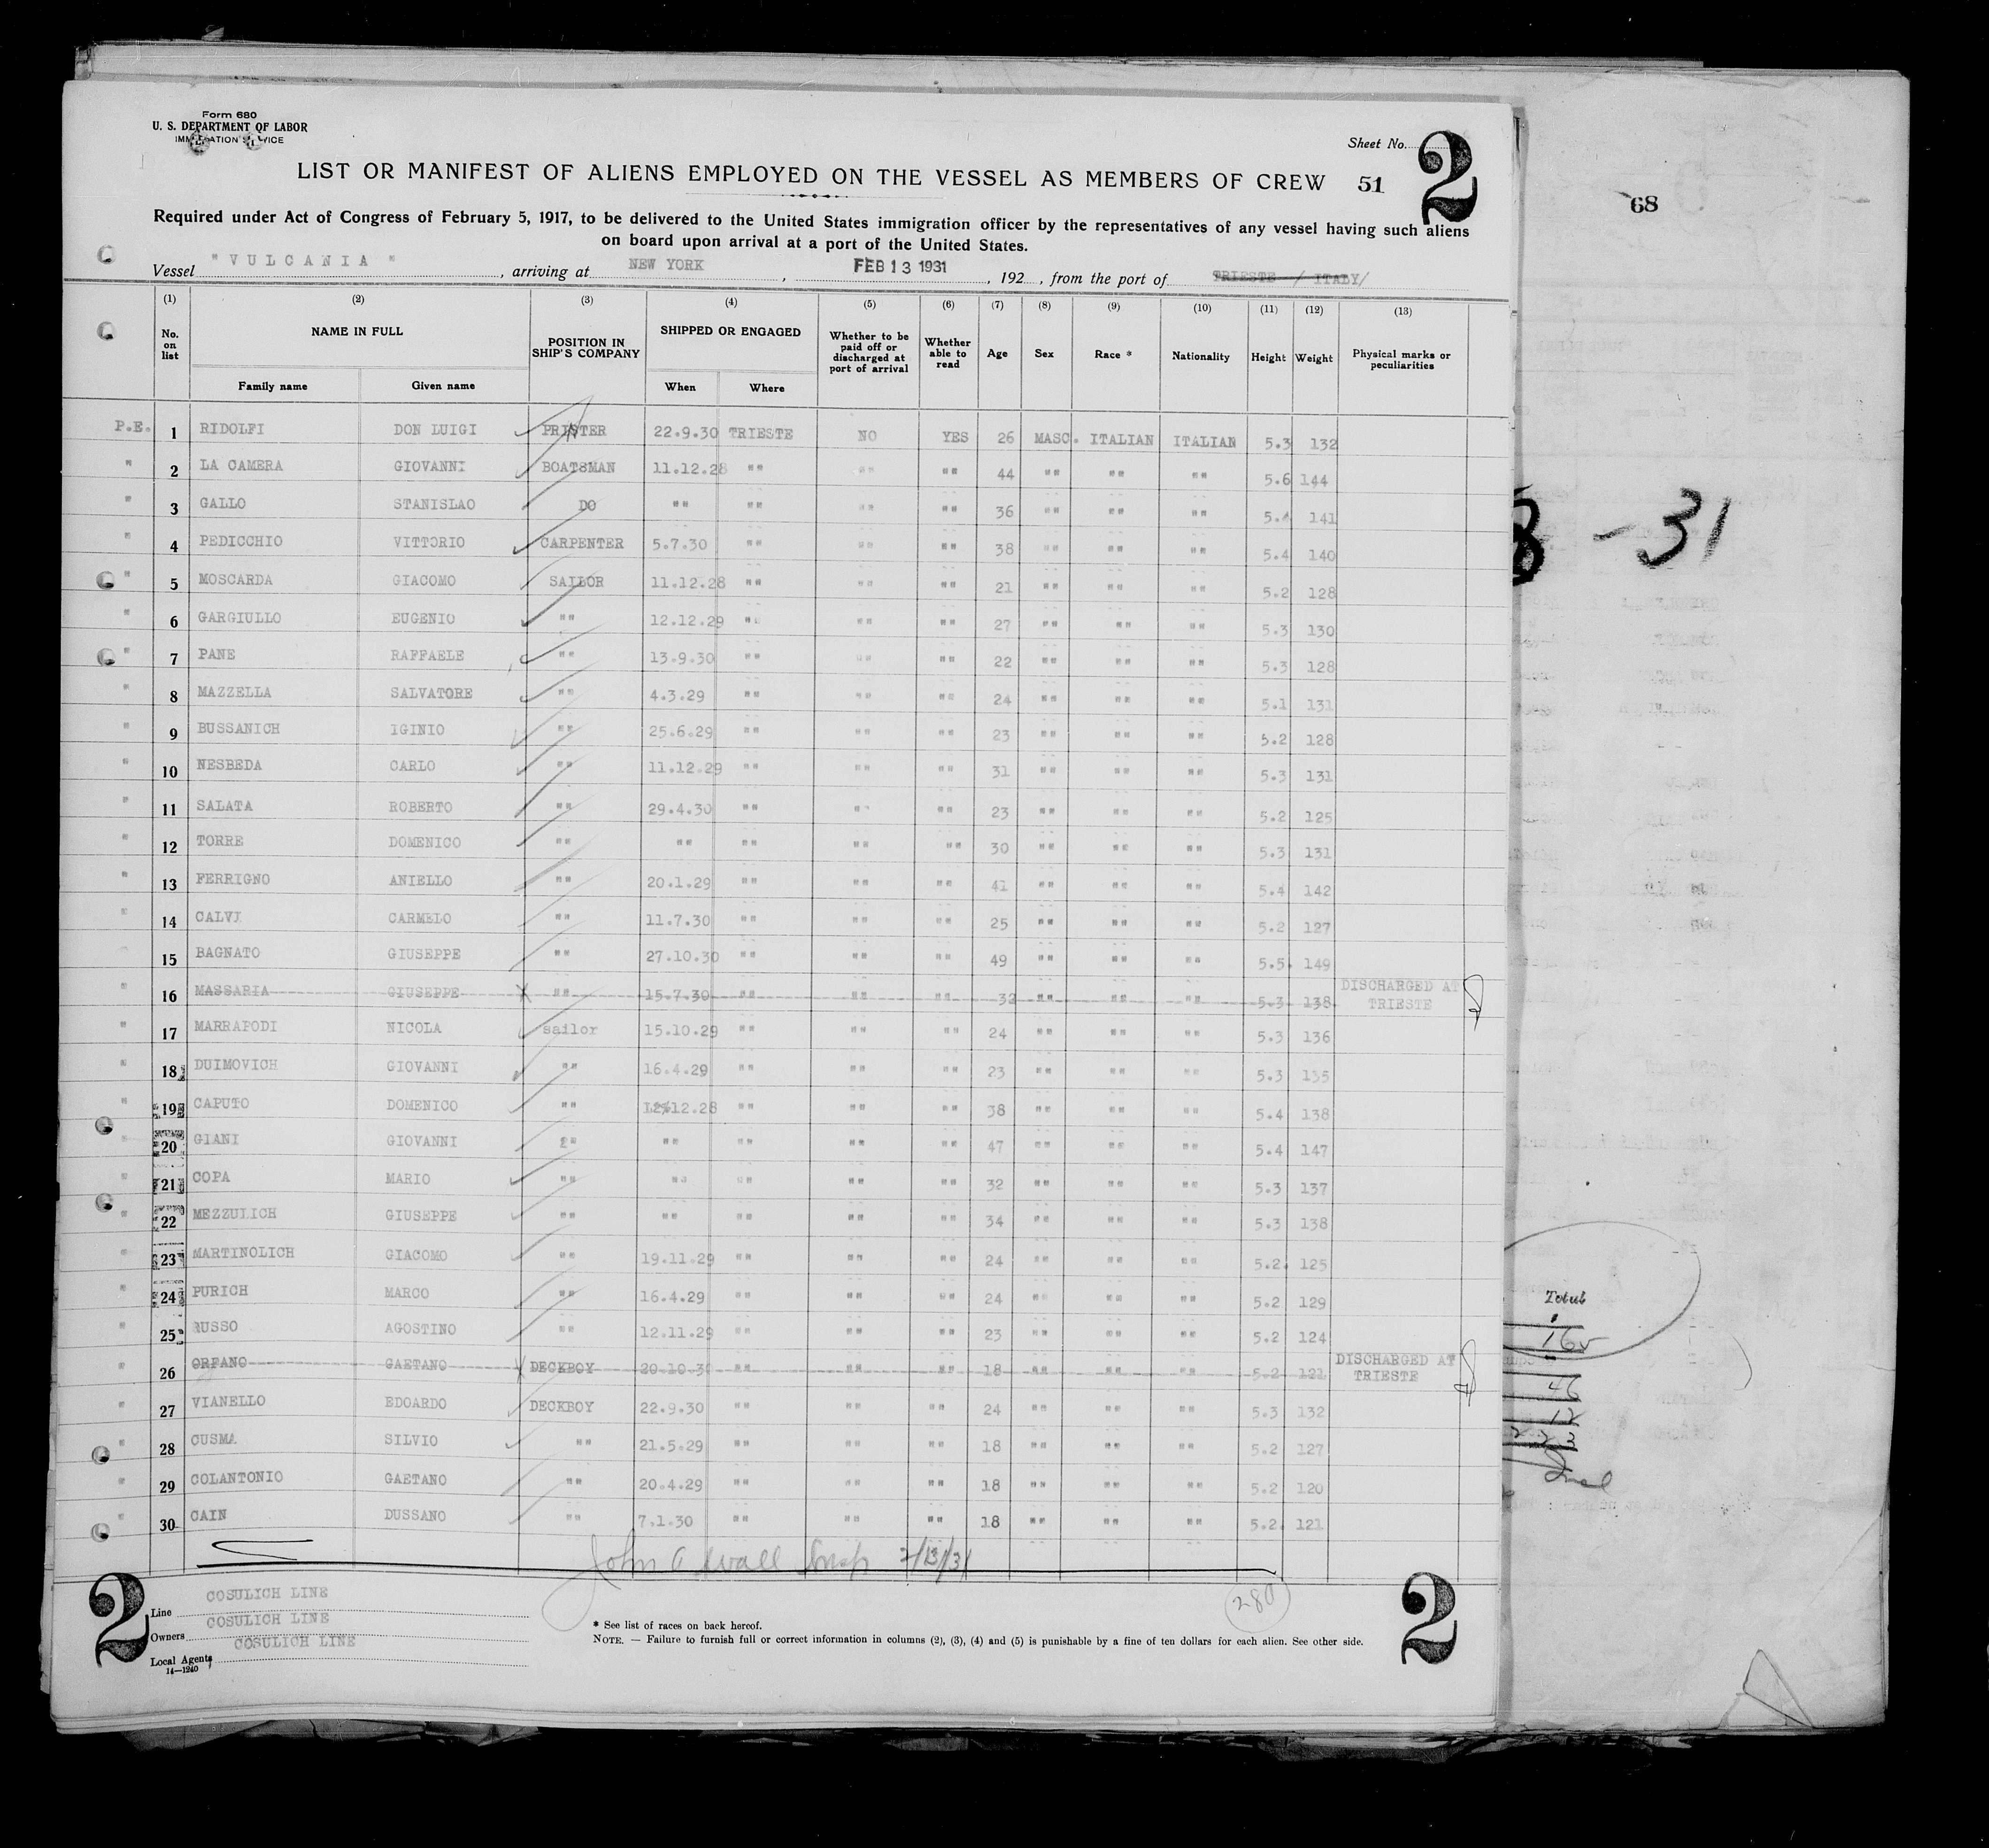 Form 680
U. S. DEPARTMENT OF LABOR
Sheet No.
2
LIST OR MANIFEST OF ALIENS EMPLOYED ON THE VESSEL AS MEMBERS OF CREW 51
68
Required under Act of Congress of February 5, 1917, to be delivered to the United States immigration officer by the representatives of any vessel having such aliens
on board upon arrival at a port of the United States.
Vessel "VULCANIA", arriving at NEW YORK, FEB 13 1931, 192 , from the port of TRIESTE / ITALY/
(1) (2) (3) (4) (5) (6) (7) (8) (9) (10) (11) (12) (13)
No. on list NAME IN FULL POSITION IN SHIP'S COMPANY SHIPPED OR ENGAGED Whether to be paid off or discharged at port of arrival Whether able to read Age Sex Race * Nationality Height Weight Physical marks or peculiarities
Family name Given name When Where
P.E. 1 RIDOLFI DON LUIGI PRISTER 22.9.30 TRIESTE NO YES 26 MASC. ITALIAN ITALIAN 5.3 132
" 2 LA CAMERA GIOVANNI BOATSMAN 11.12.28 "" "" "" 44 "" "" "" 5.6 144
" 3 GALLO STANISLAO DO "" "" "" "" 36 "" "" "" 5.4 141
" 4 PEDICCHIO VITTORIO CARPENTER 5.7.30 "" "" "" 38 "" "" "" 5.4 140
" 5 MOSCARDA GIACOMO SAILOR 11.12.28 "" "" "" 21 "" "" "" 5.2 128
" 6 GARGIULLO EUGENIO "" 12.12.29 "" "" "" 27 "" "" "" 5.3 130
" 7 PANE RAFFAELE "" 13.9.30 "" "" "" 22 "" "" "" 5.3 128
" 8 MAZZELLA SALVATORE "" 4.3.29 "" "" "" 24 "" "" "" 5.1 131
" 9 BUSSANICH IGINIO "" 25.6.29 "" "" "" 23 "" "" "" 5.2 128
" 10 NESBEDA CARLO "" 11.12.29 "" "" "" 31 "" "" "" 5.3 131
" 11 SALATA ROBERTO "" 29.4.30 "" "" "" 23 "" "" "" 5.2 125
" 12 TORRE DOMENICO "" "" "" "" "" 30 "" "" "" 5.3 131
" 13 FERRIGNO ANIELLO "" 20.1.29 "" "" "" 41 "" "" "" 5.4 142
" 14 CALVI CARMELO "" 11.7.30 "" "" "" 25 "" "" "" 5.2 127
" 15 BAGNATO GIUSEPPE "" 27.10.30 "" "" "" 49 "" "" "" 5.5 149
" 16 MASSARIA GIUSEPPE "" 15.7.30 "" "" "" 32 "" "" "" 5.3 138 DISCHARGED AT TRIESTE
" 17 MARRAPODI NICOLA sailor 15.10.29 "" "" "" 24 "" "" "" 5.3 136
" 18 DUIMOVICH GIOVANNI "" 16.4.29 "" "" "" 23 "" "" "" 5.3 135
" 19 CAPUTO DOMENICO "" 12.12.28 "" "" "" 38 "" "" "" 5.4 138
" 20 GIANI GIOVANNI "" "" "" "" "" 47 "" "" "" 5.4 147
" 21 COPA MARIO "" "" "" "" "" 32 "" "" "" 5.3 137
" 22 MEZZULICH GIUSEPPE "" "" "" "" "" 34 "" "" "" 5.3 138
" 23 MARTINOLICH GIACOMO "" 19.11.29 "" "" "" 24 "" "" "" 5.2 125
" 24 PURICH MARCO "" 16.4.29 "" "" "" 24 "" "" "" 5.2 129
" 25 RUSSO AGOSTINO "" 12.11.29 "" "" "" 23 "" "" "" 5.2 124
" 26 ORFANO GAETANO DECKBOY 20.10.30 "" "" "" 18 "" "" "" 5.2 121 DISCHARGED AT TRIESTE
" 27 VIANELLO EDOARDO DECKBOY 22.9.30 "" "" "" 24 "" "" "" 5.3 132
" 28 CUSMA SILVIO "" 21.5.29 "" "" "" 18 "" "" "" 5.2 127
" 29 COLANTONIO GAETANO "" 20.4.29 "" "" "" 18 "" "" "" 5.2 120
" 30 CAIN DUSSANO "" 7.1.30 "" "" "" 18 "" "" "" 5.2 121
John A Wall Insp 2/13/31
280
2
2
Line COSULICH LINE
Owners COSULICH LINE
Local Agents COSULICH LINE
14—1240
* See list of races on back hereof.
NOTE. — Failure to furnish full or correct information in columns (2), (3), (4) and (5) is punishable by a fine of ten dollars for each alien. See other side.
-31
Total
46
12